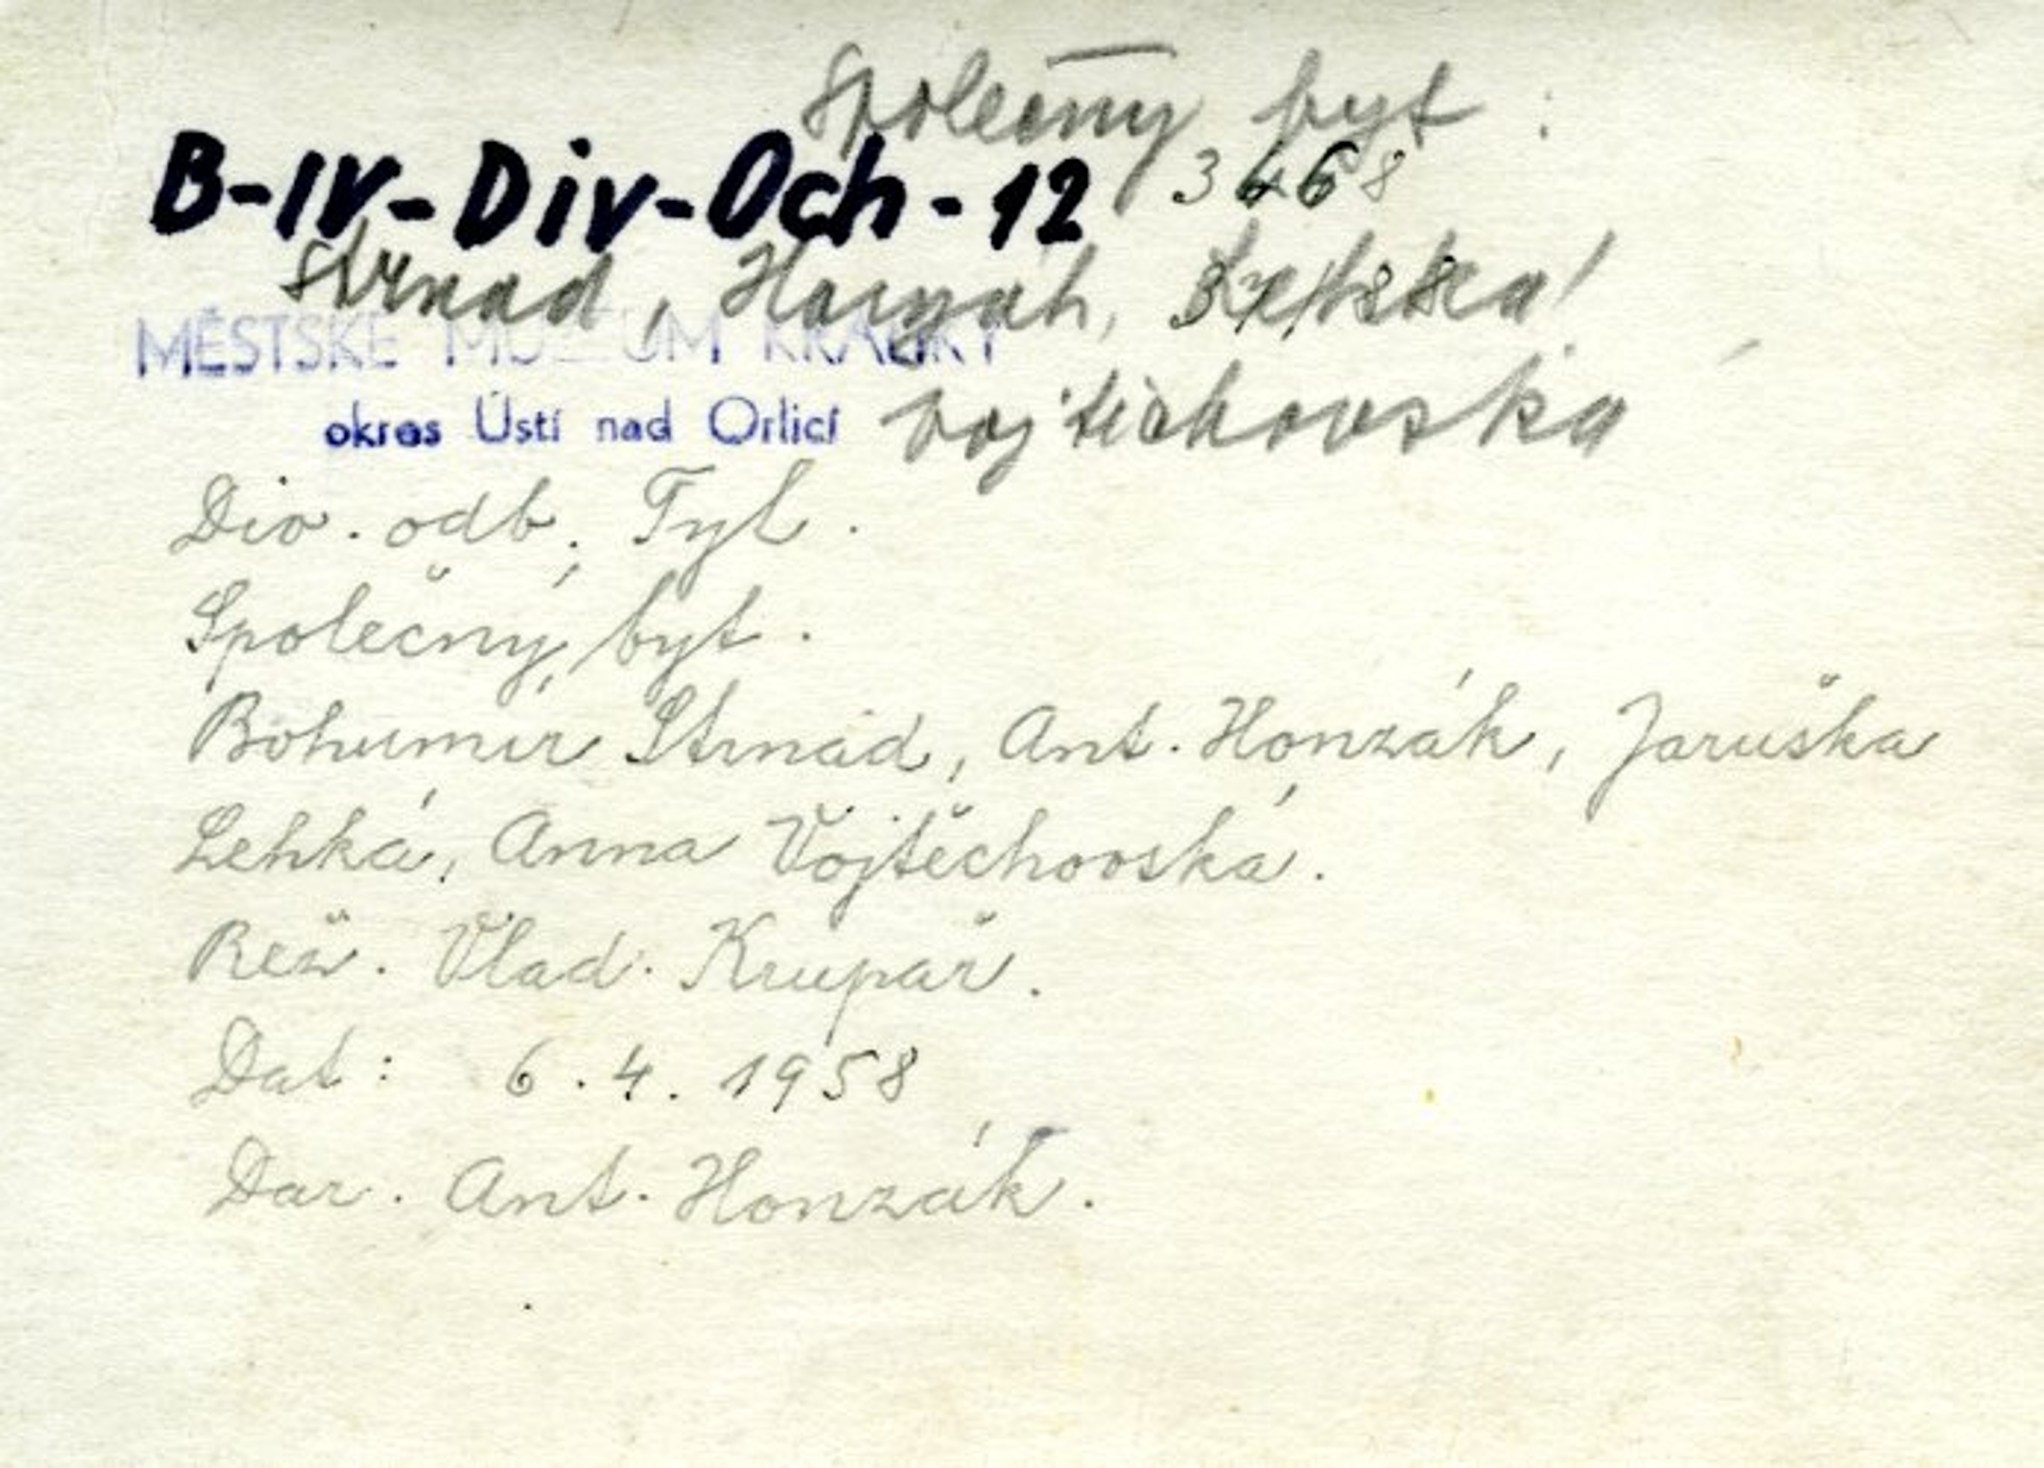 Společný byt :
B-IV-Div-Och-12 3468
Strnad, Honzák, Lehká
MĚSTSKÉ MUZEUM KRÁLÍKY
okres Ústí nad Orlicí Vojtěchovská
Div. odb. Tyl.
Společný byt.
Bohumír Strnad, Ant. Honzák, Jaruška
Lehká, Anna Vojtěchovská.
Rež. Vlad. Krupař.
Dat: 6.4.1958
Dar. Ant. Honzák.